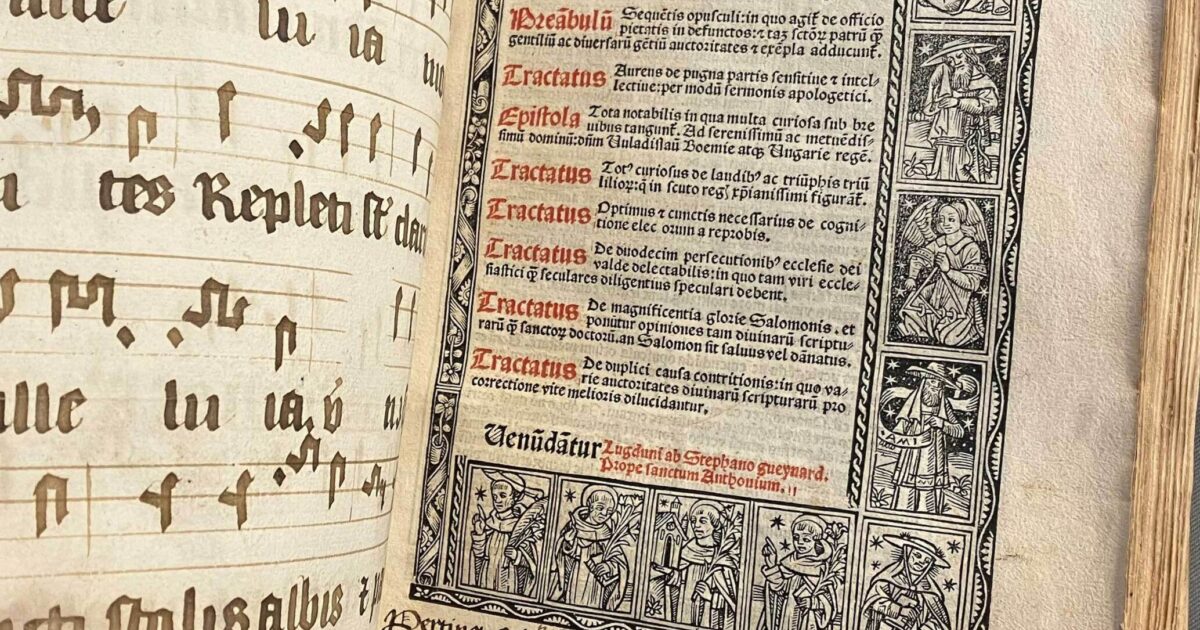 lu ia
tes Repleti st̄ clar
alle lu ia, v̄
stolis albis
Preābulū Sequētis opusculi: in quo agit̄ de officio
pietatis in defunctos: ⁊ taꝫ sctōꝝ patrū ꝙ̄
gentiliū ac diversarū gētiū auctoritates ⁊ exēpla adducunt̄.
Tractatus Aureus de pugna partis sensitiue ⁊ intel-
lectiue: per modū sermonis apologetici.
Epistola Tota notabilis in qua multa curiosa sub bre
uibus tangunt̄. Ad serenissimū ac metuēdis-
simū dominū: dn̄m Uuladislaū Boemie atqꝫ Ungarie regē.
Tractatus Totꝰ curiosus de laudibꝰ ac triūphis triū
lilioꝝ: q̄ in scuto regꝭ xp̄ianissimi figurāt̄.
Tractatus Optimus ⁊ cunctis necessarius de cogni-
tione elec orum a reprobis.
Tractatus De duodecim persecutionibꝰ ecclesie dei
valde delectabilis: in quo tam viri eccle-
siastici ꝙ̄ seculares diligentius speculari debent.
Tractatus De magnificentia glorie Salomonis. et
ponūtur opiniones tam diuinarū scriptu-
rarū ꝙ̄ sanctoꝝ doctorū. an Salomon sit saluus vel dānatus.
Tractatus De duplici causa contritionis: in quo va-
rie auctoritates diuinarū scripturarū pro
correctione vite melioris dilucidantur.
Uenūdātur Lugduni ab Stephano gueynard.
Prope sanctum Anthonium.
AMI